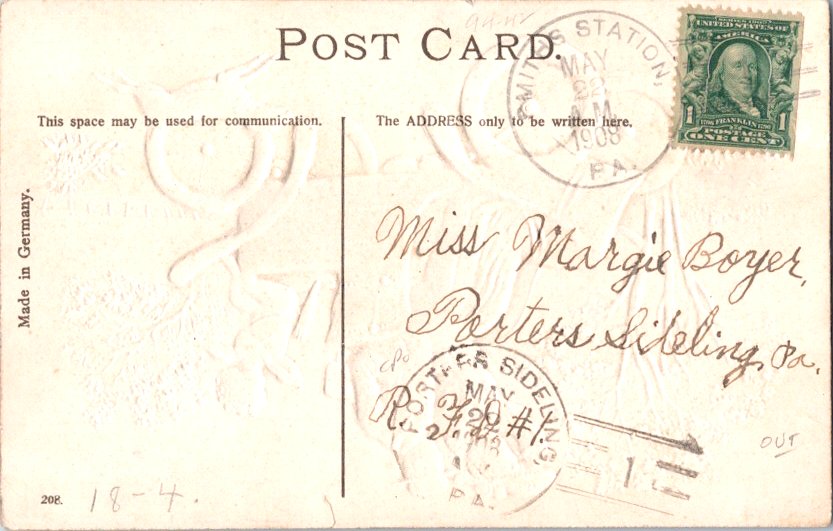 99-42
POST CARD.
SMITHS STATION,
MAY
22
A.M.
1908
PA.
SERIES 1902
UNITED STATES OF
AMERICA
1 1
1706 FRANKLIN 1790
POSTAGE
ONE CENT
This space may be used for communication.
The ADDRESS only to be written here.
Made in Germany.
Miss Margie Boyer,
Porters Sideling, Pa.
R. F. D. #1.
CPO
PORTERS SIDELING,
MAY
PA.
1
OUT
208.
18-4.